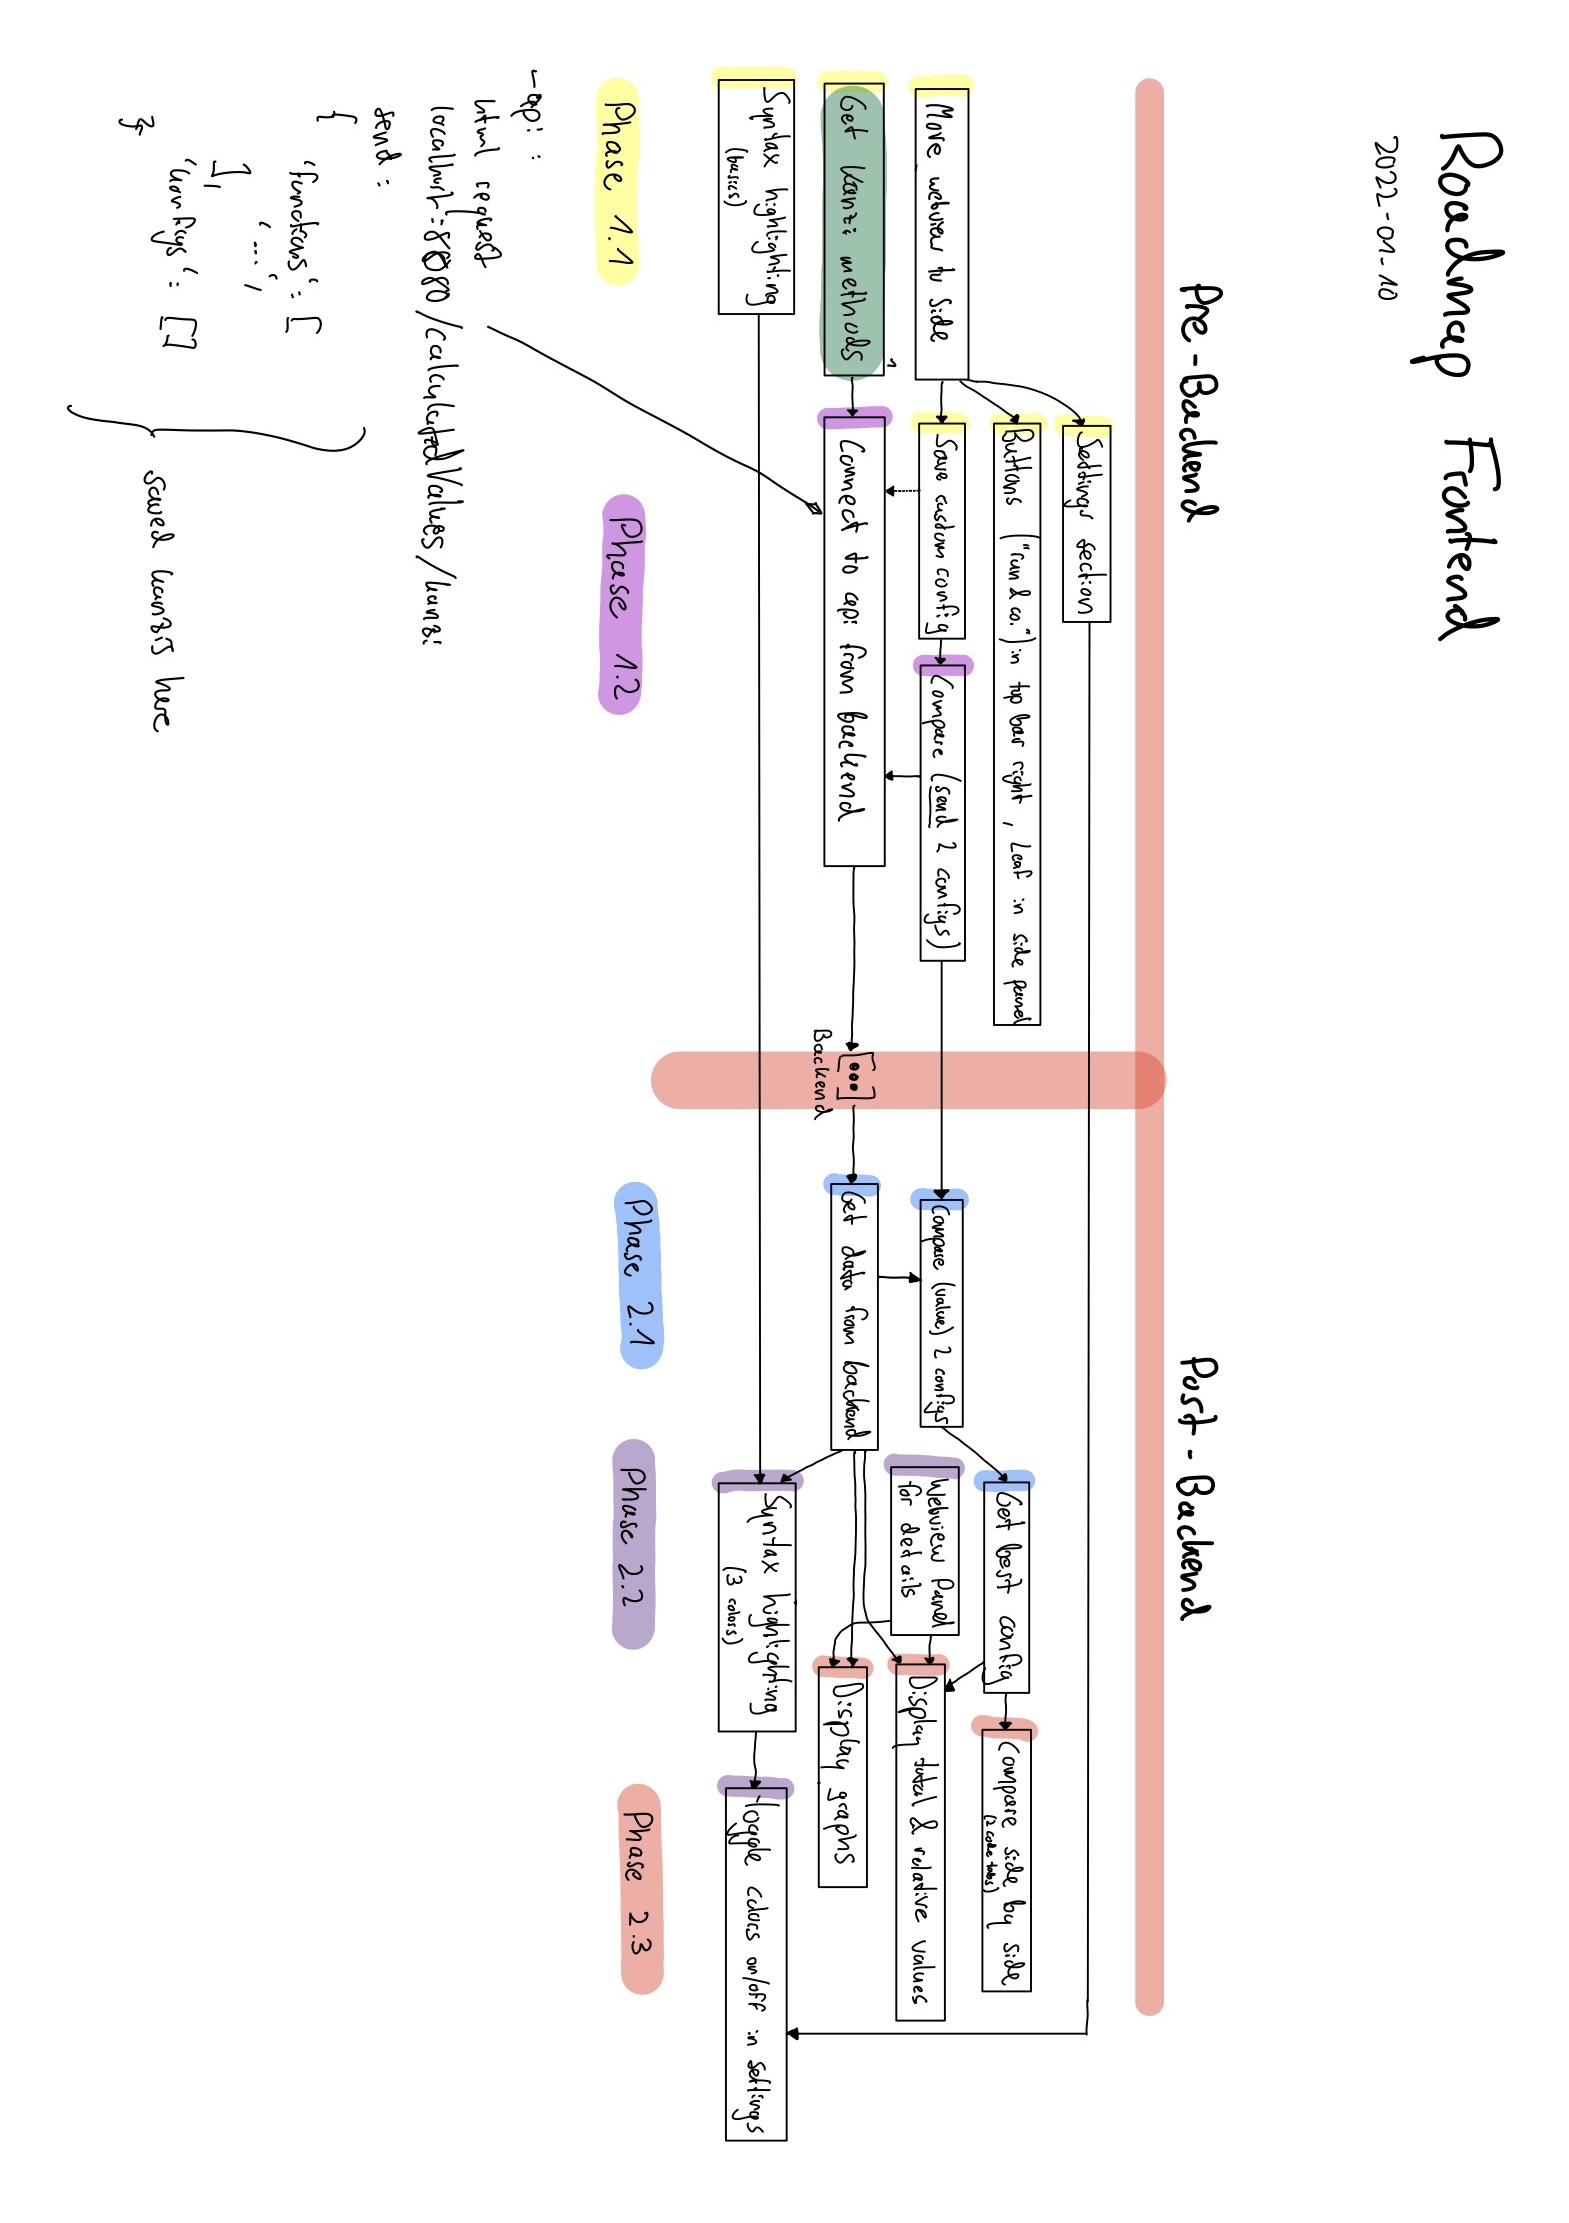 Roadmap Frontend
2022-01-10
Pre-Backend
Post-Backend
Settings section
Buttons ("run & co.") in top bar right, Leaf in side panel
Move webview to side
Save custom config
Compare (send 2 configs)
Get kanzi methods
1
Connect to api from backend
Syntax highlighting
(basics)
...
Backend
Compare (value) 2 configs
Get data from backend
Get best config
Compare side by side
(2 code tabs)
Webview Panel
for details
Display total & relative values
Display graphs
Syntax highlighting
(3 colors)
Toggle colors on/off in settings
Phase 1.1
Phase 1.2
Phase 2.1
Phase 2.2
Phase 2.3
-api:
html request
localhost:8080/calculatedValues/kanzi
send:
{
"functions": [
"...",
],
"configs": []
}
saved kanzis here